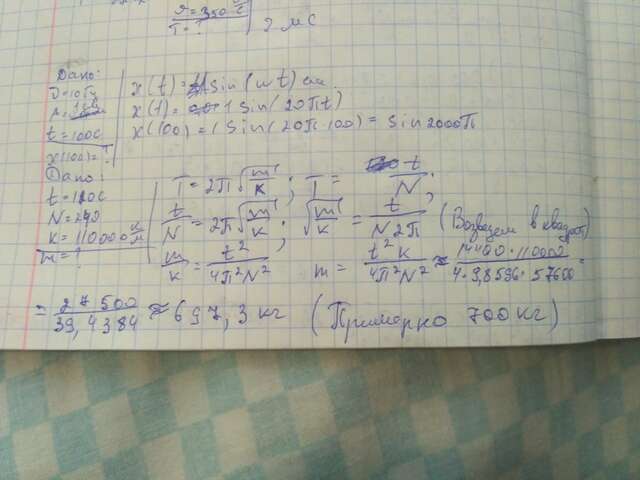 ν=350 м/с
T=?
2 мс
Дано:
ν=10 Гц
t=100с
x(100)=?
x(t)= sin(ωt) см
x(t)= 1 sin(20πt)
x(100)=1 sin(20π·100)= sin2000π
Дано:
t=120с
N=240
k=110000 Н/м
m=?
T=2π√m/k ; T= t/N ;
t/N = 2π√m/k ; √m/k = t/N2π (Возведем в квадрат)
m/k = t²/4π²N² ; m= t²k/4π²N² ≈ 14400·110000/4·9,8596·57600 =
= 27500/39,4384 ≈ 697,3 кг (Примерно 700 кг)